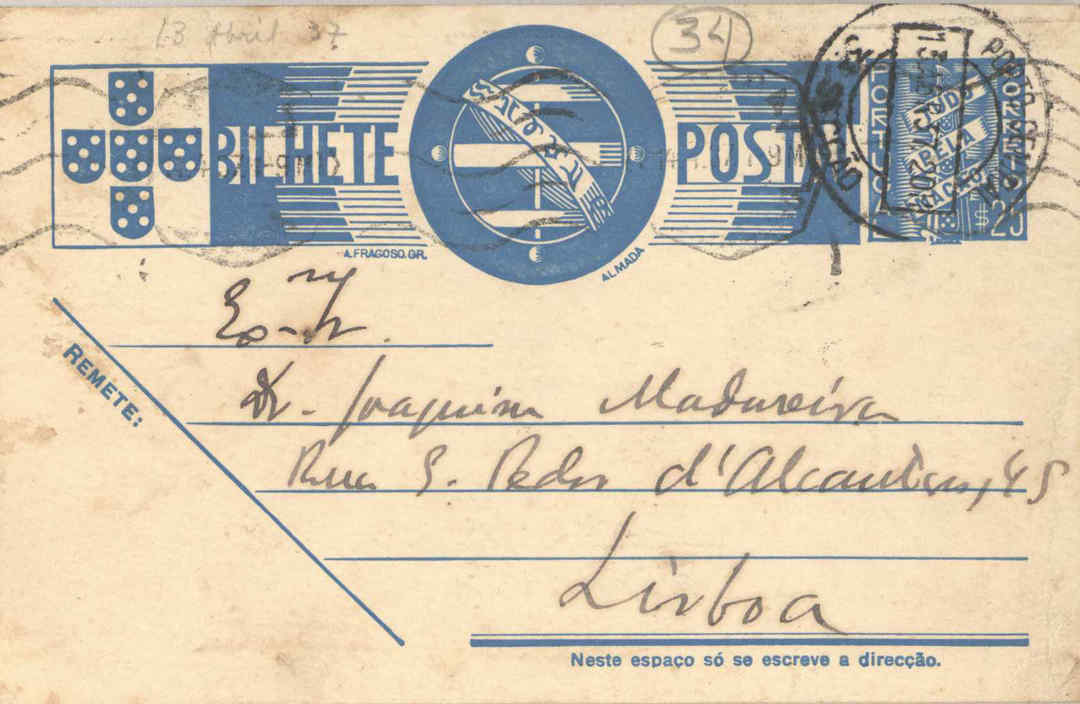 13 Abril 37
34
BILHETE POSTAL
TUDO PELA NAÇÃO
$25
A. FRAGOSO. GR.
ALMADA
Exmo Sr.
Dr. Joaquim Madureira
Rua S. Pedro d'Alcantara, 45
Lisboa
REMETE:
Neste espaço só se escreve a direcção.